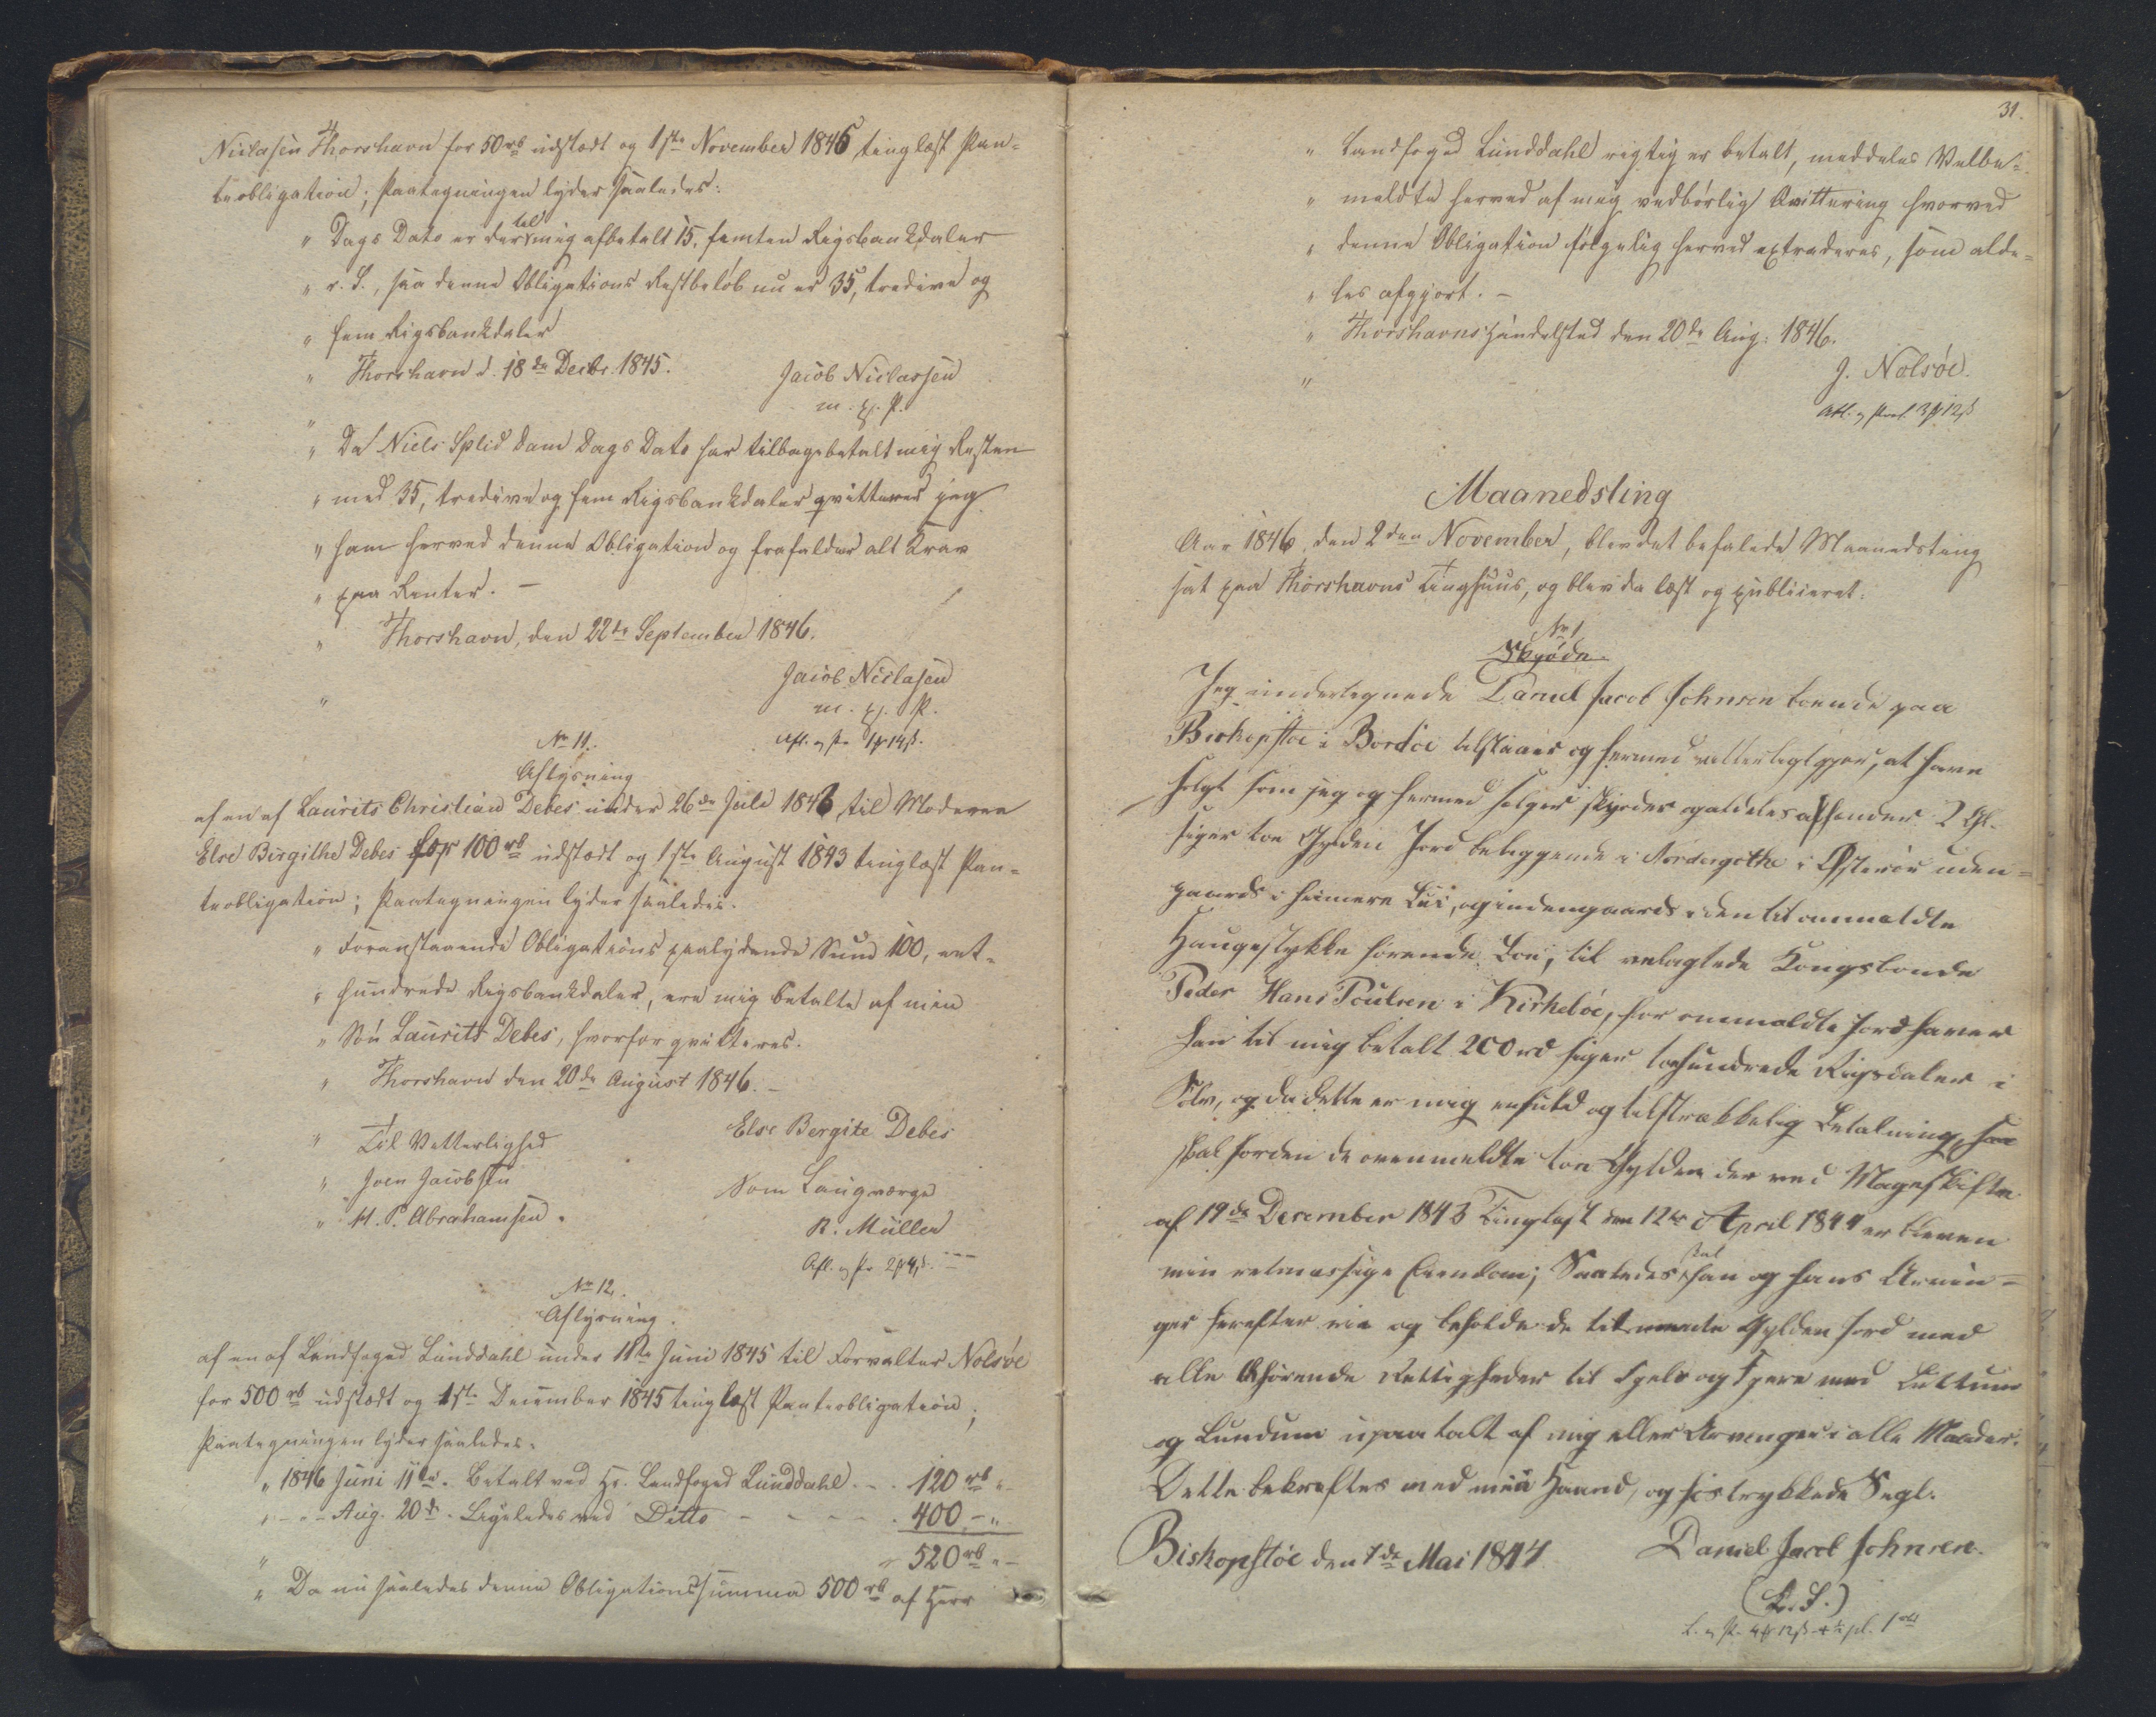 Niclasen Thorshavn for 50 rb udstædt og 1ste November 1845 tinglæst Pan=
teobligation; Paategningen lyder saaledes:
" Dags Dato er der til mig afbetalt 15, femten Rigsbankdaler
" r. S., saa denne Obligations Restbeløb nu er 35, tredive og
" fem Rigsbankdaler
" Thorshavn d. 18de Decbr. 1845.
Jacob Niclassen
m. f. P.
"
" Da Niels Splid Dam Dags Dato har tilbagebetalt mig Resten
" med 35, tredive og fem Rigsbankdaler qvitterer jeg
" ham herved denne Obligation og frafalder alt Krav
" paa Renter. –
" Thorshavn, den 22de September 1846.
Jacob Niclasen
" m. f. P.
No 11.
Afl. og Pr 1 14 ß.
Aflysning
af en af Laurits Christian Debes under 26de Juli 1843 til Moderen
Else Birgithe Debes for 100 rb udstædt og 1ste August 1843 tinglæst Pan=
teobligation; Paategningen lyder saaledes.
" Foranstaaende Obligations paalydende Sum 100, eet=
" hundrede Rigsbankdaler, ere mig betalte af min
" Søn Laurits Debes, hvorfor qvitteres.
" Thorshavn den 20de August 1846. –
Else Bergite Debes
" Til Vitterlighed
" Joen Jacobsen
Som Laugværge
" H. P. Abrahamsen.
R. Müller
Afl. og Pr 2 4 ß.
No 12.
Aflysning.
af en af Landfoged Lunddahl under 11te Juni 1845 til Forvalter Nolsøe
for 500 rb udstædt og 1ste December 1845 tinglæst Panteobligation;
Paategningen lyder saaledes.
" 1846 Juni 11te. Betalt ved Hr. Landfoged Lunddahl . - . 120 rb "
" - " - Aug. 20de. Ligeledes ved Ditto - - - - . 400 - "
" 520 rb " -
" Da nu saaledes denne Obligationssumma 500 rb af Herr
31.
" Landfoged Lunddahl rigtig er betalt, meddeles Velbe=
" meldte herved af mig vedbørlig Qvittering hvorved
" denne Obligation følgelig herved extraderes, som alde=
" les afgjort. –
" Thorshavns Handelsted den 20de Aug: 1846.
" J. Nolsøe.
Afl. og Prot. 3 12 ß
Maanedsting
Aar 1846, den 2den November, blev det befalede Maanedsting
sat paa Thorshavns Tinghuus, og blev da læst og publiceret:
No 1
Skjøde.
Jeg undertegnede Daniel Jacob Johnsen boende paa
Biskopstøe i Bordøe tilstaaer og hermed vitterligtgjør, at have
solgt som jeg og hermed sælger skjøder og aldeles afhænder 2 Gl.
siger toe Gylden Jord beliggende i Nordergøthe i Østerøe uden=
gaards i heimere Lui, og indengaards i den til ommeldte
Haugestykke hørende Lon, til velagtede Kongsbonde
Peder Hans Poulsen i Kirkebøe, for ommeldte Jord haver
han til mig betalt 200 rd siger tohundrede Rigsdaler i
Sølv, og da dette er mig enfuld og tilstrækkelig Betalning, saa
skal Jorden de ovenmeldte toe Gylden der ved Mageskifte
af 19de December 1843 Tinglæst den 12te April 1844 er bleven
min retmæssige Eiendom; Saaledes skal han og hans Arvin=
ger herefter eie og beholde de tilnævnte Gylden Jord med
alle tilhørende Rettigheder til Fjelds og Fjere med Luttum
og Lundum upaatalt af mig eller Arvinger i alle Maader.
Dette bekræftes med min Haand, og hostrykkede Segl.
Biskopstøe den 7de Mai 1844
Daniel Jacob Johnsen.
(L. S.)